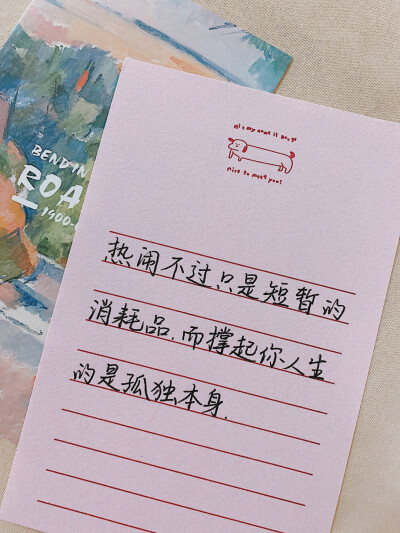 BEND IN
ROA
1900-
Hi ~ my name is Doogi
Nice to meet you!
热闹不过只是短暂的
消耗品,而撑起你人生
的是孤独本身.